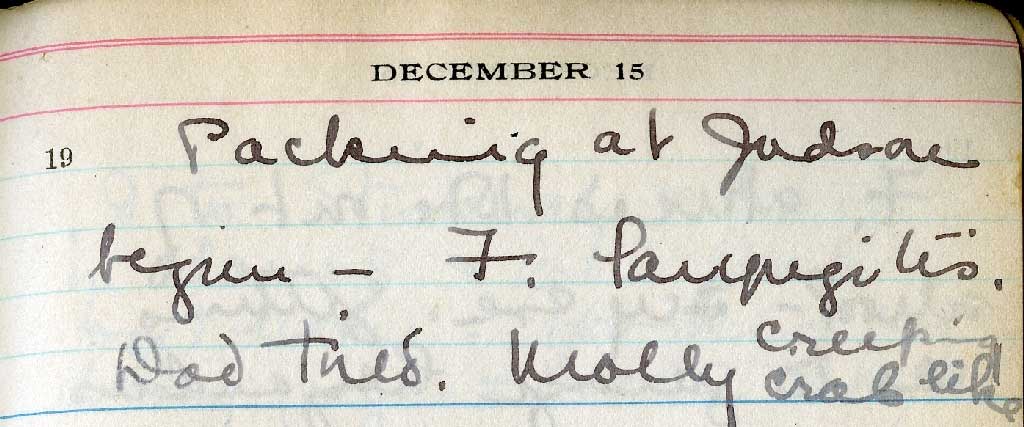 DECEMBER 15
19 Packing at Judson
begun – F. Laryngitis.
Dad tired. Molly creeping
crab like